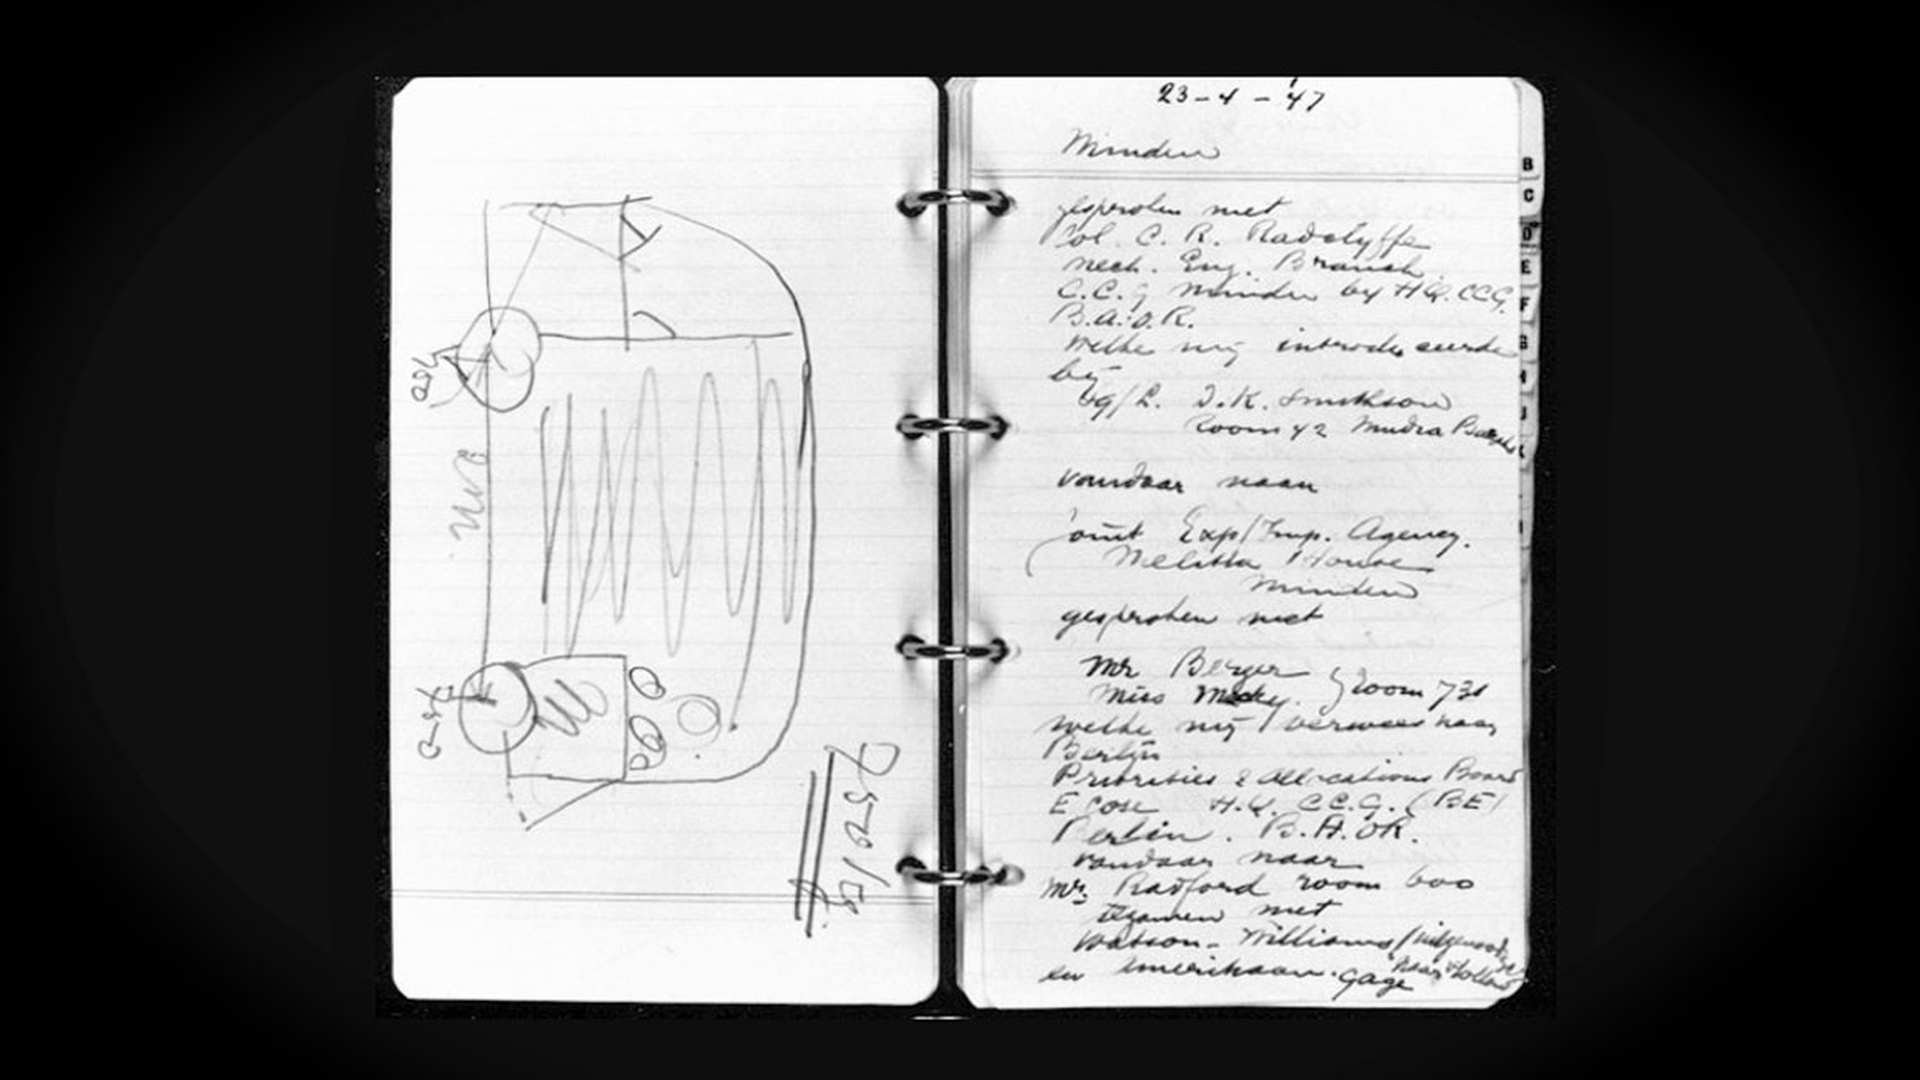 23-4-'47
Minden
gesproken met
Col. C. R. Radclyffe
Mech. Eng. Branch.
C.C.G Minden by HQ. CCG.
B.A.O.R.
Welke mij introduceerde
bij
I.K. Smithson
Room 42
vandaar naar
Joint Exp/Imp. Agency.
Melitta House
Minden
gesproken met
Mr Berger
Miss room 731
welke mij verwees naar
Berlijn
Priorities & Allocations Board
H.Q. C.C.G. (BE)
Berlin. B.A.OR.
vandaar naar
Mr. Radford room 600
tezamen met
Watson-Williams
en Amerikaan. Gage
750
B
C
D
E
F
G
H
J
K